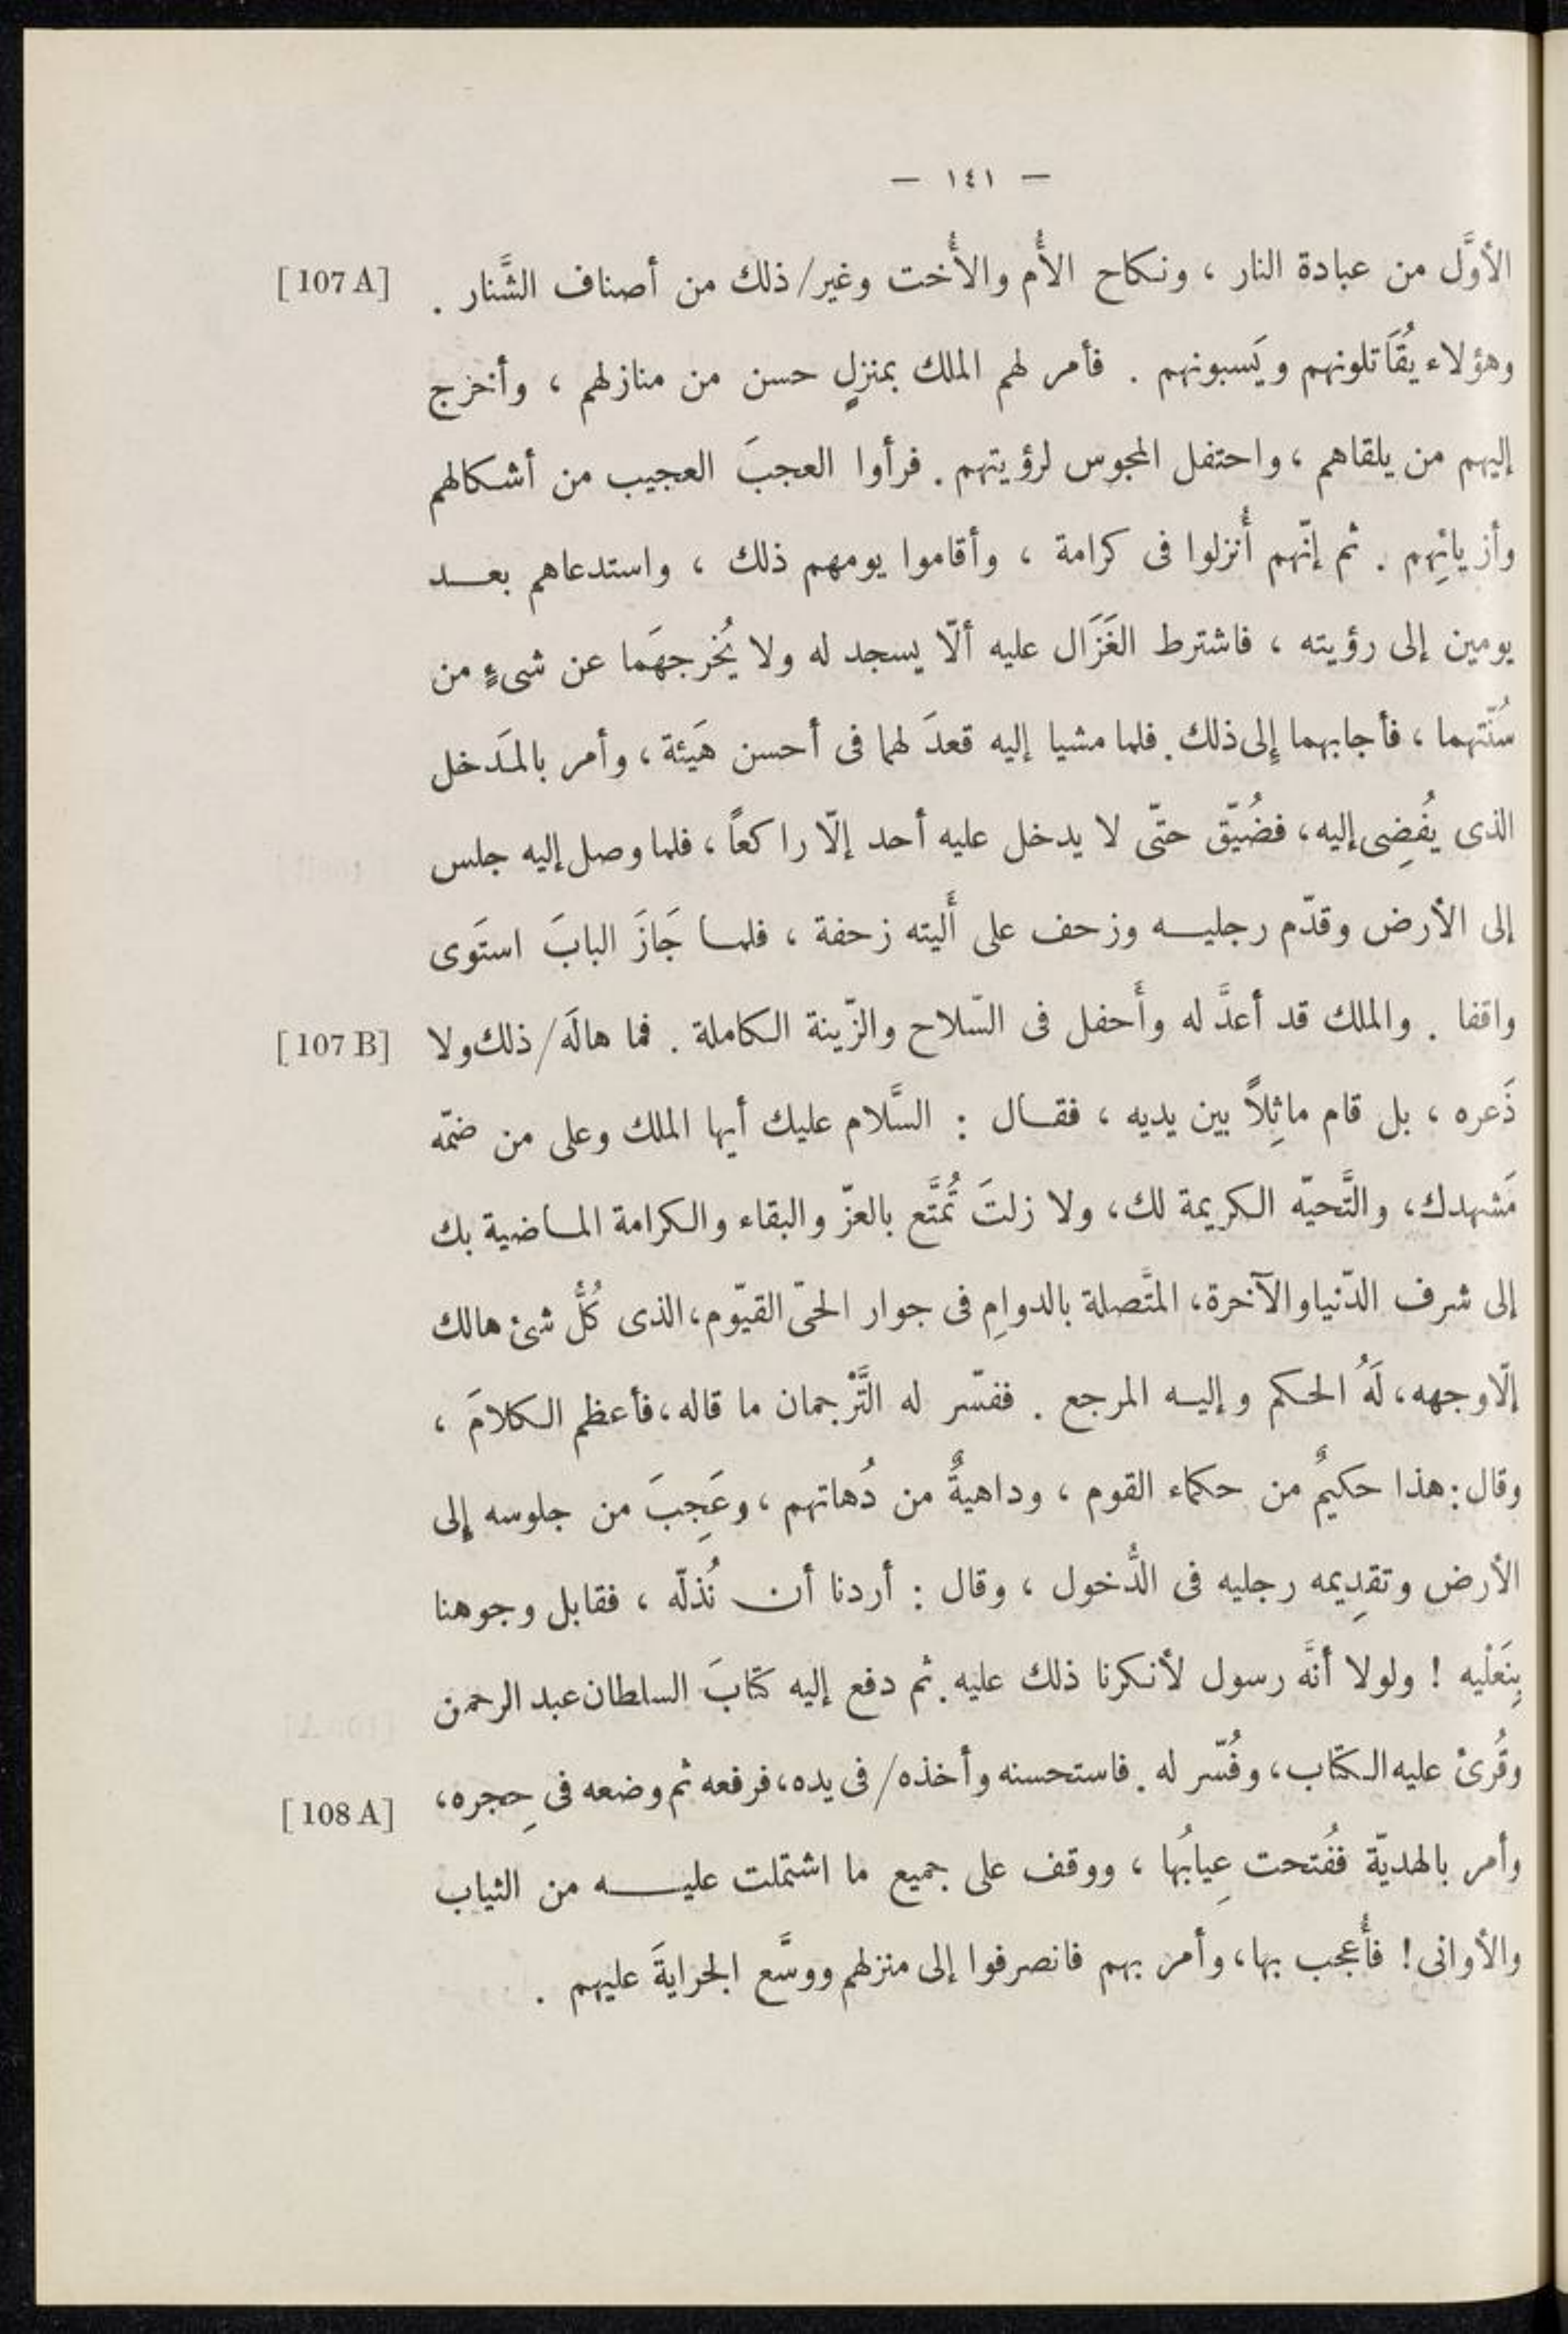 — ١٤١ —
الأوَّل من عبادة النار ، ونكاح الأُم والأُخت وغير/ذلك من أصناف الشَّنار . [107 A]
وهؤلاء يُقَاتلونهم ويَسبونهم . فأمر لهم الملك بمنزلٍ حسن من منازلهم ، وأخرج
إليهم من يلقاهم ، واحتفل المجوس لرؤيتهم . فرأوا العجبَ العجيب من أشكالهم
وأزيائِهم . ثم إنّهم أُنزلوا فى كرامة ، وأقاموا يومهم ذلك ، واستدعاهم بعد
يومين إلى رؤيته ، فاشترط الغَزَال عليه ألّا يسجد له ولا يُخرجهَما عن شىءٍ من
سُنّتهما ، فأجابهما إلى ذلك . فلما مشيا إليه قعدَ لهما فى أحسن هَيئة ، وأمر بالمَدخل
الذى يُفضِى إليه ، فضُيّق حتّى لا يدخل عليه أحد إلّا راكعاً ، فلما وصل إليه جلس
إلى الأرض وقدّم رجليه وزحف على أَليته زحفة ، فلما جَازَ البابَ استَوى
واقفا . والملك قد أعدَّ له وأَحفل فى السّلاح والزّينة الكاملة . فما هالَه/ذلك ولا [107 B]
ذَعره ، بل قام ماثِلاً بين يديه ، فقال : السَّلام عليك أيها الملك وعلى من ضمّه
مَشهدك ، والتَّحيّه الكريمة لك ، ولا زلتَ تُمتَّع بالعزّ والبقاء والكرامة الماضية بك
إلى شرف الدّنيا والآخرة ، المتَّصلة بالدوامِ فى جوار الحىّ القيّوم ، الذى كُلُّ شئ هالك
إلّا وجهه ، لَهُ الحكم وإليه المرجع . ففسّر له التَّرْجمان ما قاله ، فأعظم الكلامَ ،
وقال : هذا حكيمٌ من حكماء القوم ، وداهيةٌ من دُهاتهم ، وعَجِبَ من جلوسه إلى
الأرض وتقدِيمه رجليه فى الدُّخول ، وقال : أردنا أن نُذلّه ، فقابل وجوهنا
بِنَعْليه ! ولولا أنَّه رسول لأنكرنا ذلك عليه . ثم دفع إليه كتابَ السلطان عبد الرحمن
وقُرئ عليه الكتاب ، وفُسّر له . فاستحسنه وأخذه/فى يده ، فرفعه ثم وضعه فى حِجره ، [108 A]
وأمر بالهديّة ففُتحت عِيابُها ، ووقف على جميع ما اشتملت عليه من الثياب
والأوانى ! فأُعجب بها ، وأمر بهم فانصرفوا إلى منزلهم ووسَّع الجرايةَ عليهم .